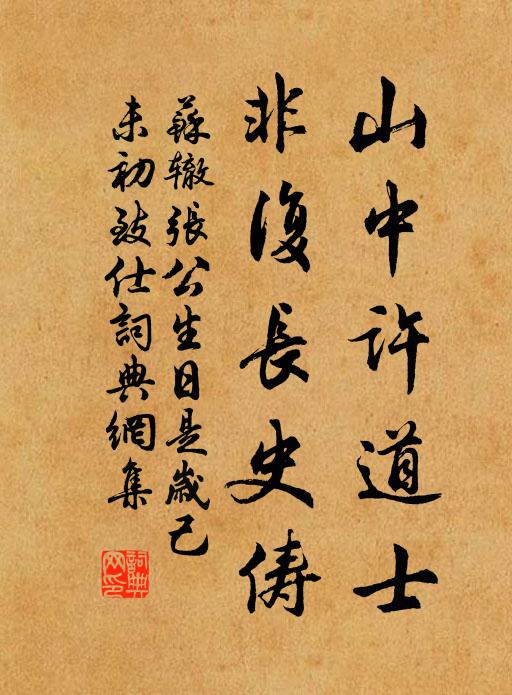 山中許道士
非復長史儔
蘇辙張公生日是歲己
未初致仕詞典網集
詞典网印